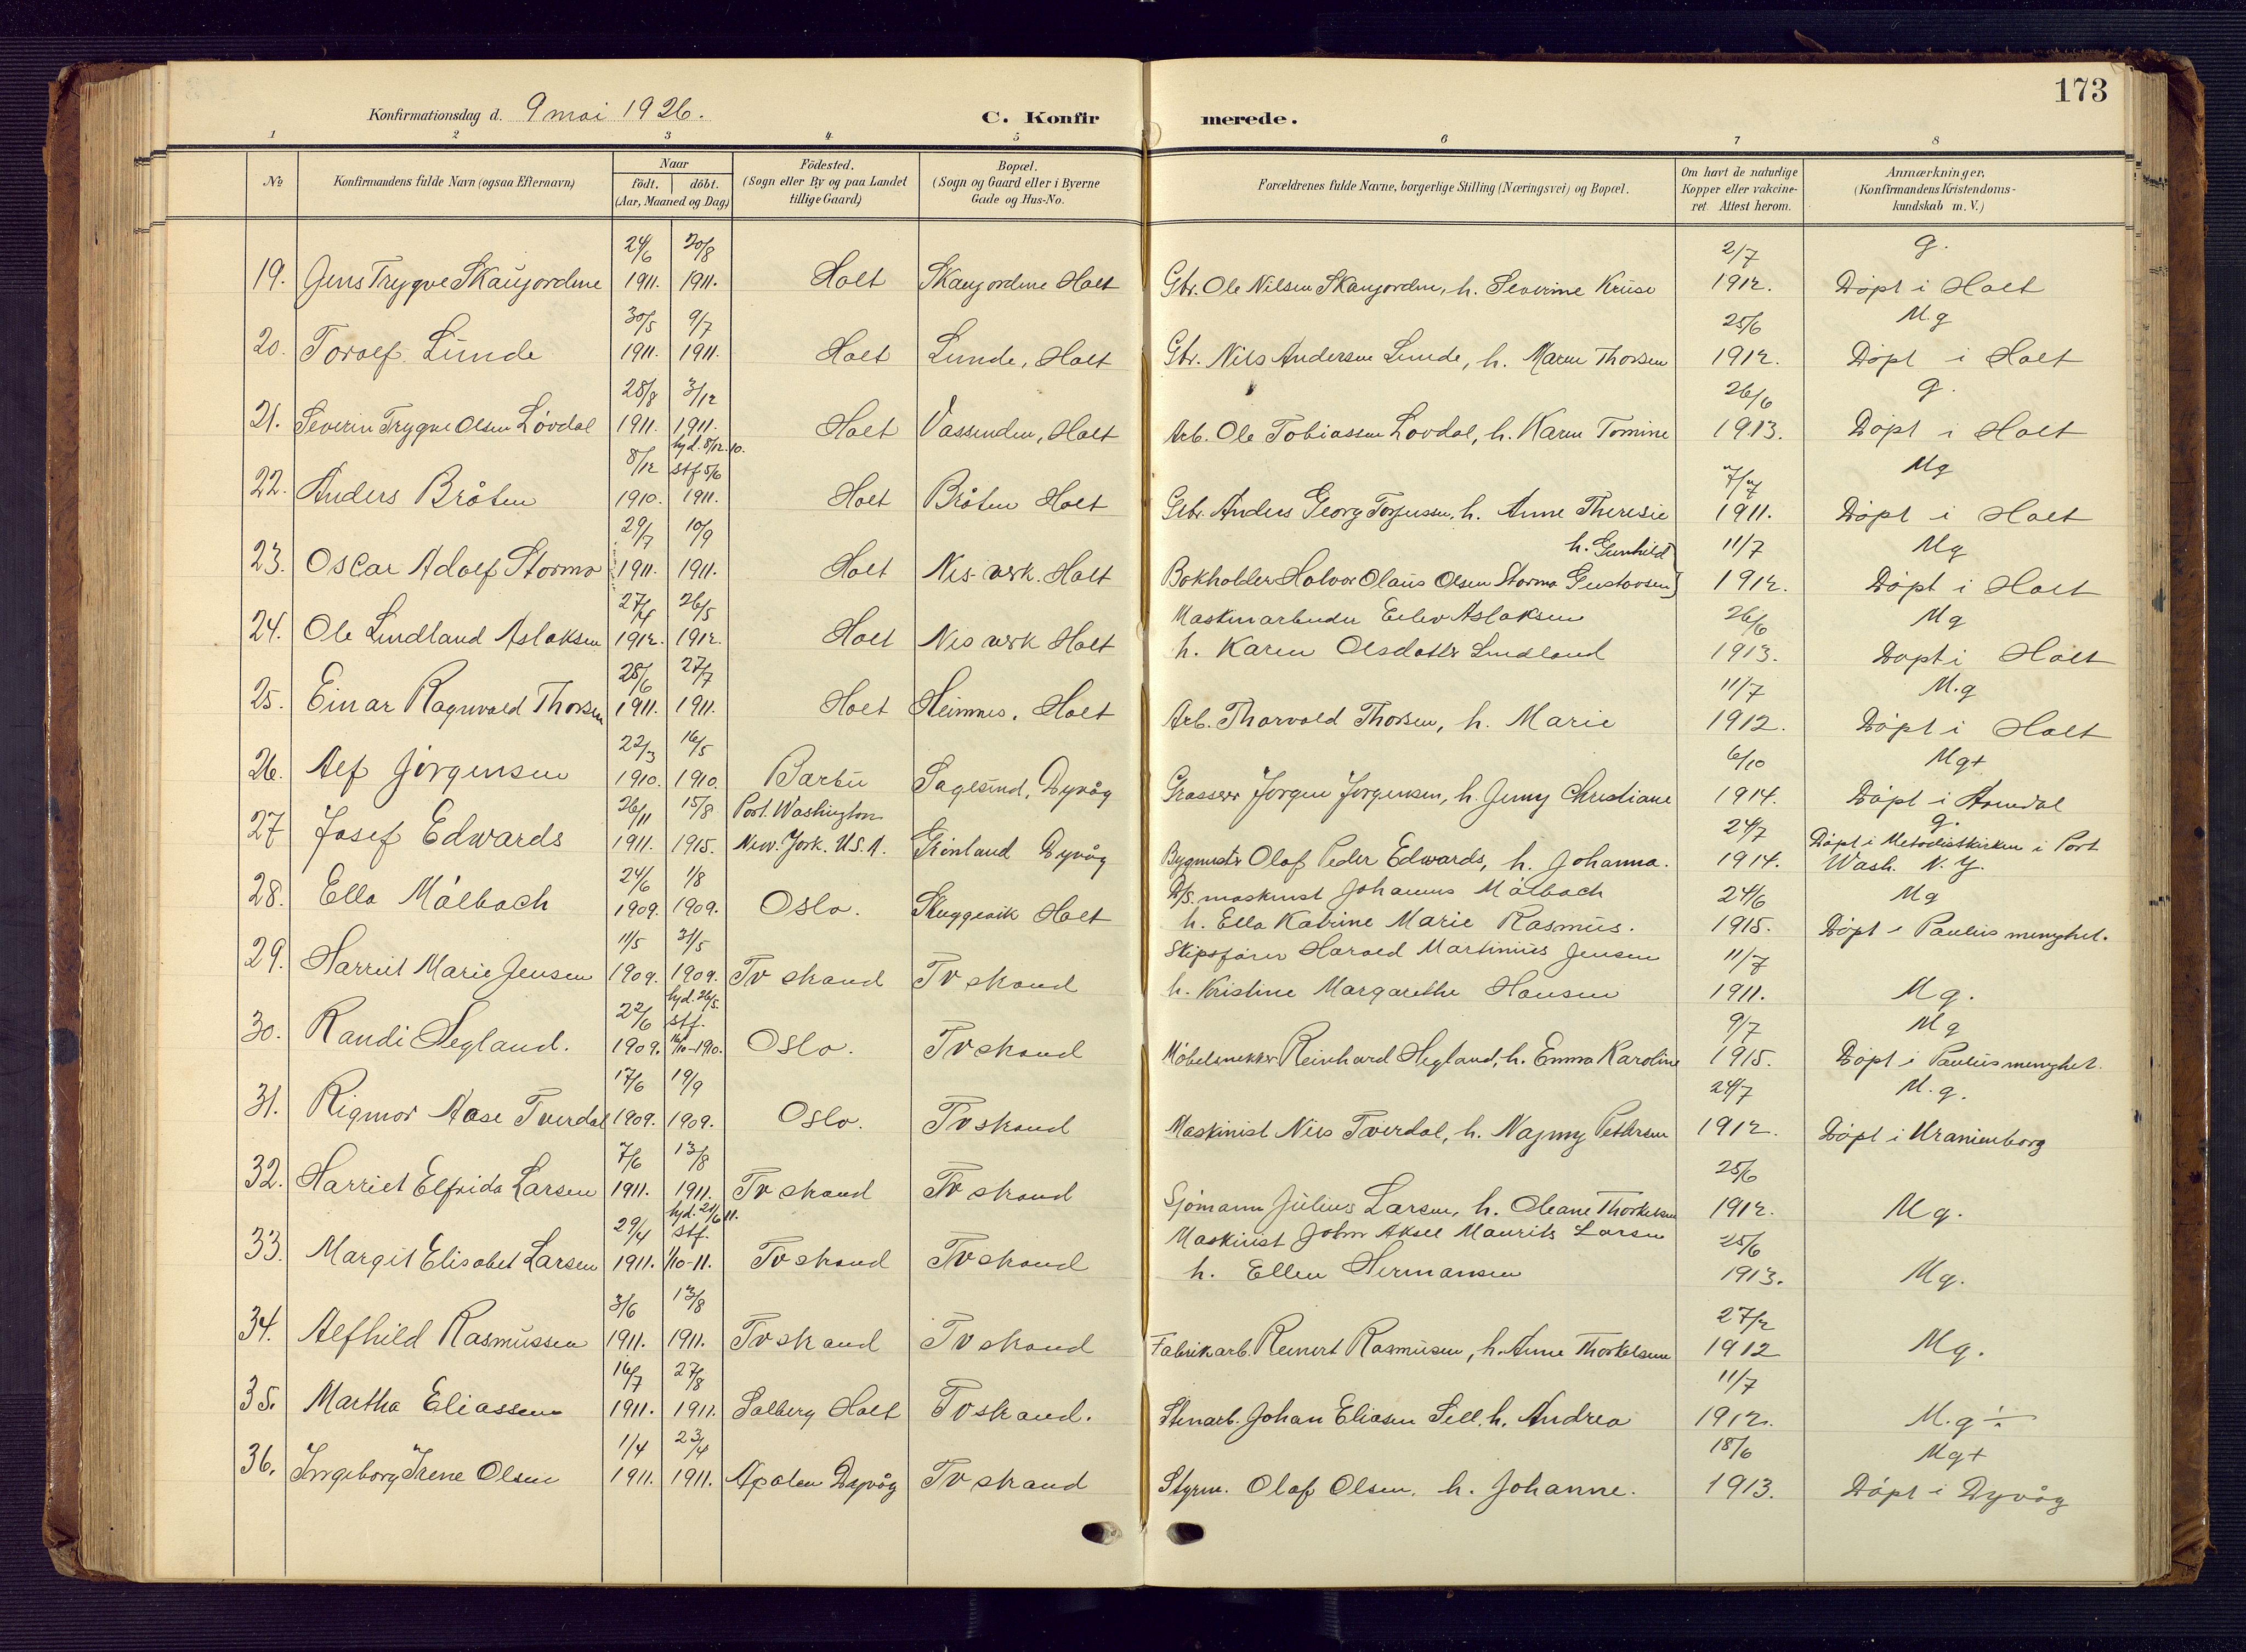 173
Konfirmationsdag d. 9 mai 1926. C. Konfirmerede.
1 2 3 4 5 6 7 8
No Konfirmandens fulde Navn (ogsaa Efternavn) Naar födt. döbt. (Aar, Maaned og Dag) Födested. (Sogn eller By og paa Landet tillige Gaard) Bopæl. (Sogn og Gaard eller i Byerne Gade og Hus-No. Forældrenes fulde Navne, borgerlige Stilling (Næringsvei) og Bopæl. Om havt de naturlige Kopper eller vakcineret Attest herom. Anmærkninger, (Konfirmandens Kristendomskundskab m.V.)
24/6 20/8 2/7 g.
19. Jens Trygve Skaujordene 1911. 1911. Holt Skaujordene Holt Gbr. Ole Nilsen Skaujorden, h. Severine Kruse 1912. Döpt i Holt
30/5 9/7 25/6 M.g
20. Toralf Lunde 1911. 1911. Holt Lunde, Holt Gbr. Nils Andersen Lunde, h. Maren Thorsen 1912. Döpt i Holt
28/8 3/12 26/6 g.
21. Severin Trygve Olsen Lövdal 1911. 1911. Holt Vassenden, Holt Arb. Ole Tobiassen Lovdal, h. Karen Tomine 1913. Döpt i Holt
8/12 hjd. 8/12.10. stf 5/6 7/7 Mg
22. Anders Bråten 1910. 1911. Holt Bråten Holt Gbr. Anders Georg Torjussen, h. Anne Theresie 1911. Döpt i Holt
29/7 10/9 h. Gunhild 11/7 Mg
23. Oscar Adolf Stormo 1911. 1911. Holt Nes verk. Holt Bokholder Halvor Olaus Olsen Stormo Gustavsen 1912. Döpt i Holt
27/4 26/5 Maskinarbeider Eilev Aslaksen 26/6 Mg
24. Ole Lindland Aslaksen 1912. 1912. Holt Nes verk Holt h. Karen Olsdatter Lindland 1913. Döpt i Holt
28/6 27/7 11/7 M.g
25. Einar Ragnvald Thorsen 1911. 1911. Holt Heimnes. Holt Arb. Thorvald Thorsen, h. Marie 1912. Döpt i Holt
22/3 16/5 6/10 Mg+
26. Alf Jörgensen 1910. 1910. Barbu Sagesund, Dyvåg Grosserer Jörgen Jörgensen, h. Jenny Christiane 1914. Döpt i Arendal
26/11 15/8 Port. Washington 24/7 g.
27 Josef Edwards 1911. 1915. New. York. U.S.A. Grönland Dyvåg Bygmester Olaf Peder Edwards, h. Johanna. 1914. Döpt i Metodistkirken i Port Wash. N.Y.
24/6 1/8 D/S. maskinist Johannes Målbach 24/6 Mg
28. Ella Målbach 1909. 1909. Oslo. Skuggevik Holt h. Ella Katrine Marie Rasmus. 1915. Döpt i Paulus menighet.
11/5 31/5 Skipsförer Harald Martinius Jensen 11/7
29. Harriet Marie Jensen 1909. 1909. Tvedestrand Tvedestrand h. Kristine Margarethe Hansen 1911. Mg.
22/6 hjd. 26/5. stf. 9/7 Mg
30. Randi Hegland. 1909. 16/10-1910. Oslo. Tvstrand Möbelsnekker Reinhard Hegland, h. Emma Karoline 1915. Döpt i Paulus menighet.
17/6 19/9 24/7 M.g.
31. Rigmor Aase Tverdal 1909. 1909. Oslo. Tvstrand Maskinist Nils Tverdal, h. Nagny Pettersen 1912. Döpt i Uranienborg
7/6 13/8 25/6
32. Harriet Elfrida Larsen 1911. 1911. Tv strand Tv strand Sjömann Julius Larsen, h. Oleane Thorkelsen 1912. Mg.
29/4 hjd. 21/6 11. stf. Maskinist John Aksel Maurits Larsen 25/6
33. Margit Elisabet Larsen 1911. 1/10-11. Tvstrand Tvstrand h. Ellen Hermansen 1913. Mg.
3/6 13/8 27/2
34. Alfhild Rasmussen 1911. 1911. Tvstrand Tvstrand Fabrikarb. Reinert Rasmusen, h. Anne Thorkelsen 1912 Mg.
16/7 27/8 11/7
35. Martha Eliassen 1911. 1911. Solberg Holt Tvstrand. Stenarb. Johan Eliasen Sell. h. Andrea 1912. M.g ÷
1/4 23/4 18/6 Mg+
36. Ingeborg Irene Olsen 1911. 1911. Dyvåg Tvstrand Styrm. Olaf Olsen. h. Johanne. 1913. Döpt i Dyvåg